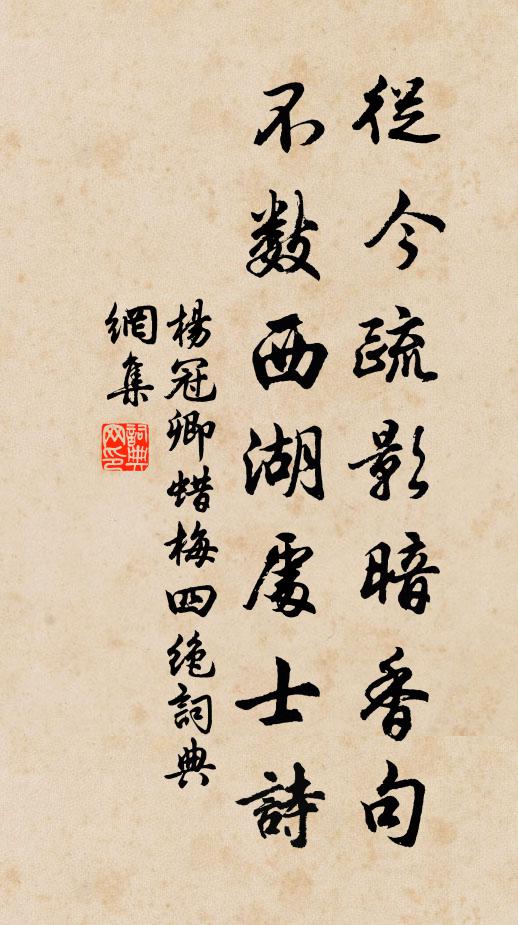 從今疏影暗香句
不數西湖處士詩
楊冠卿蜡梅四絶詞典
網集
詞典
网印